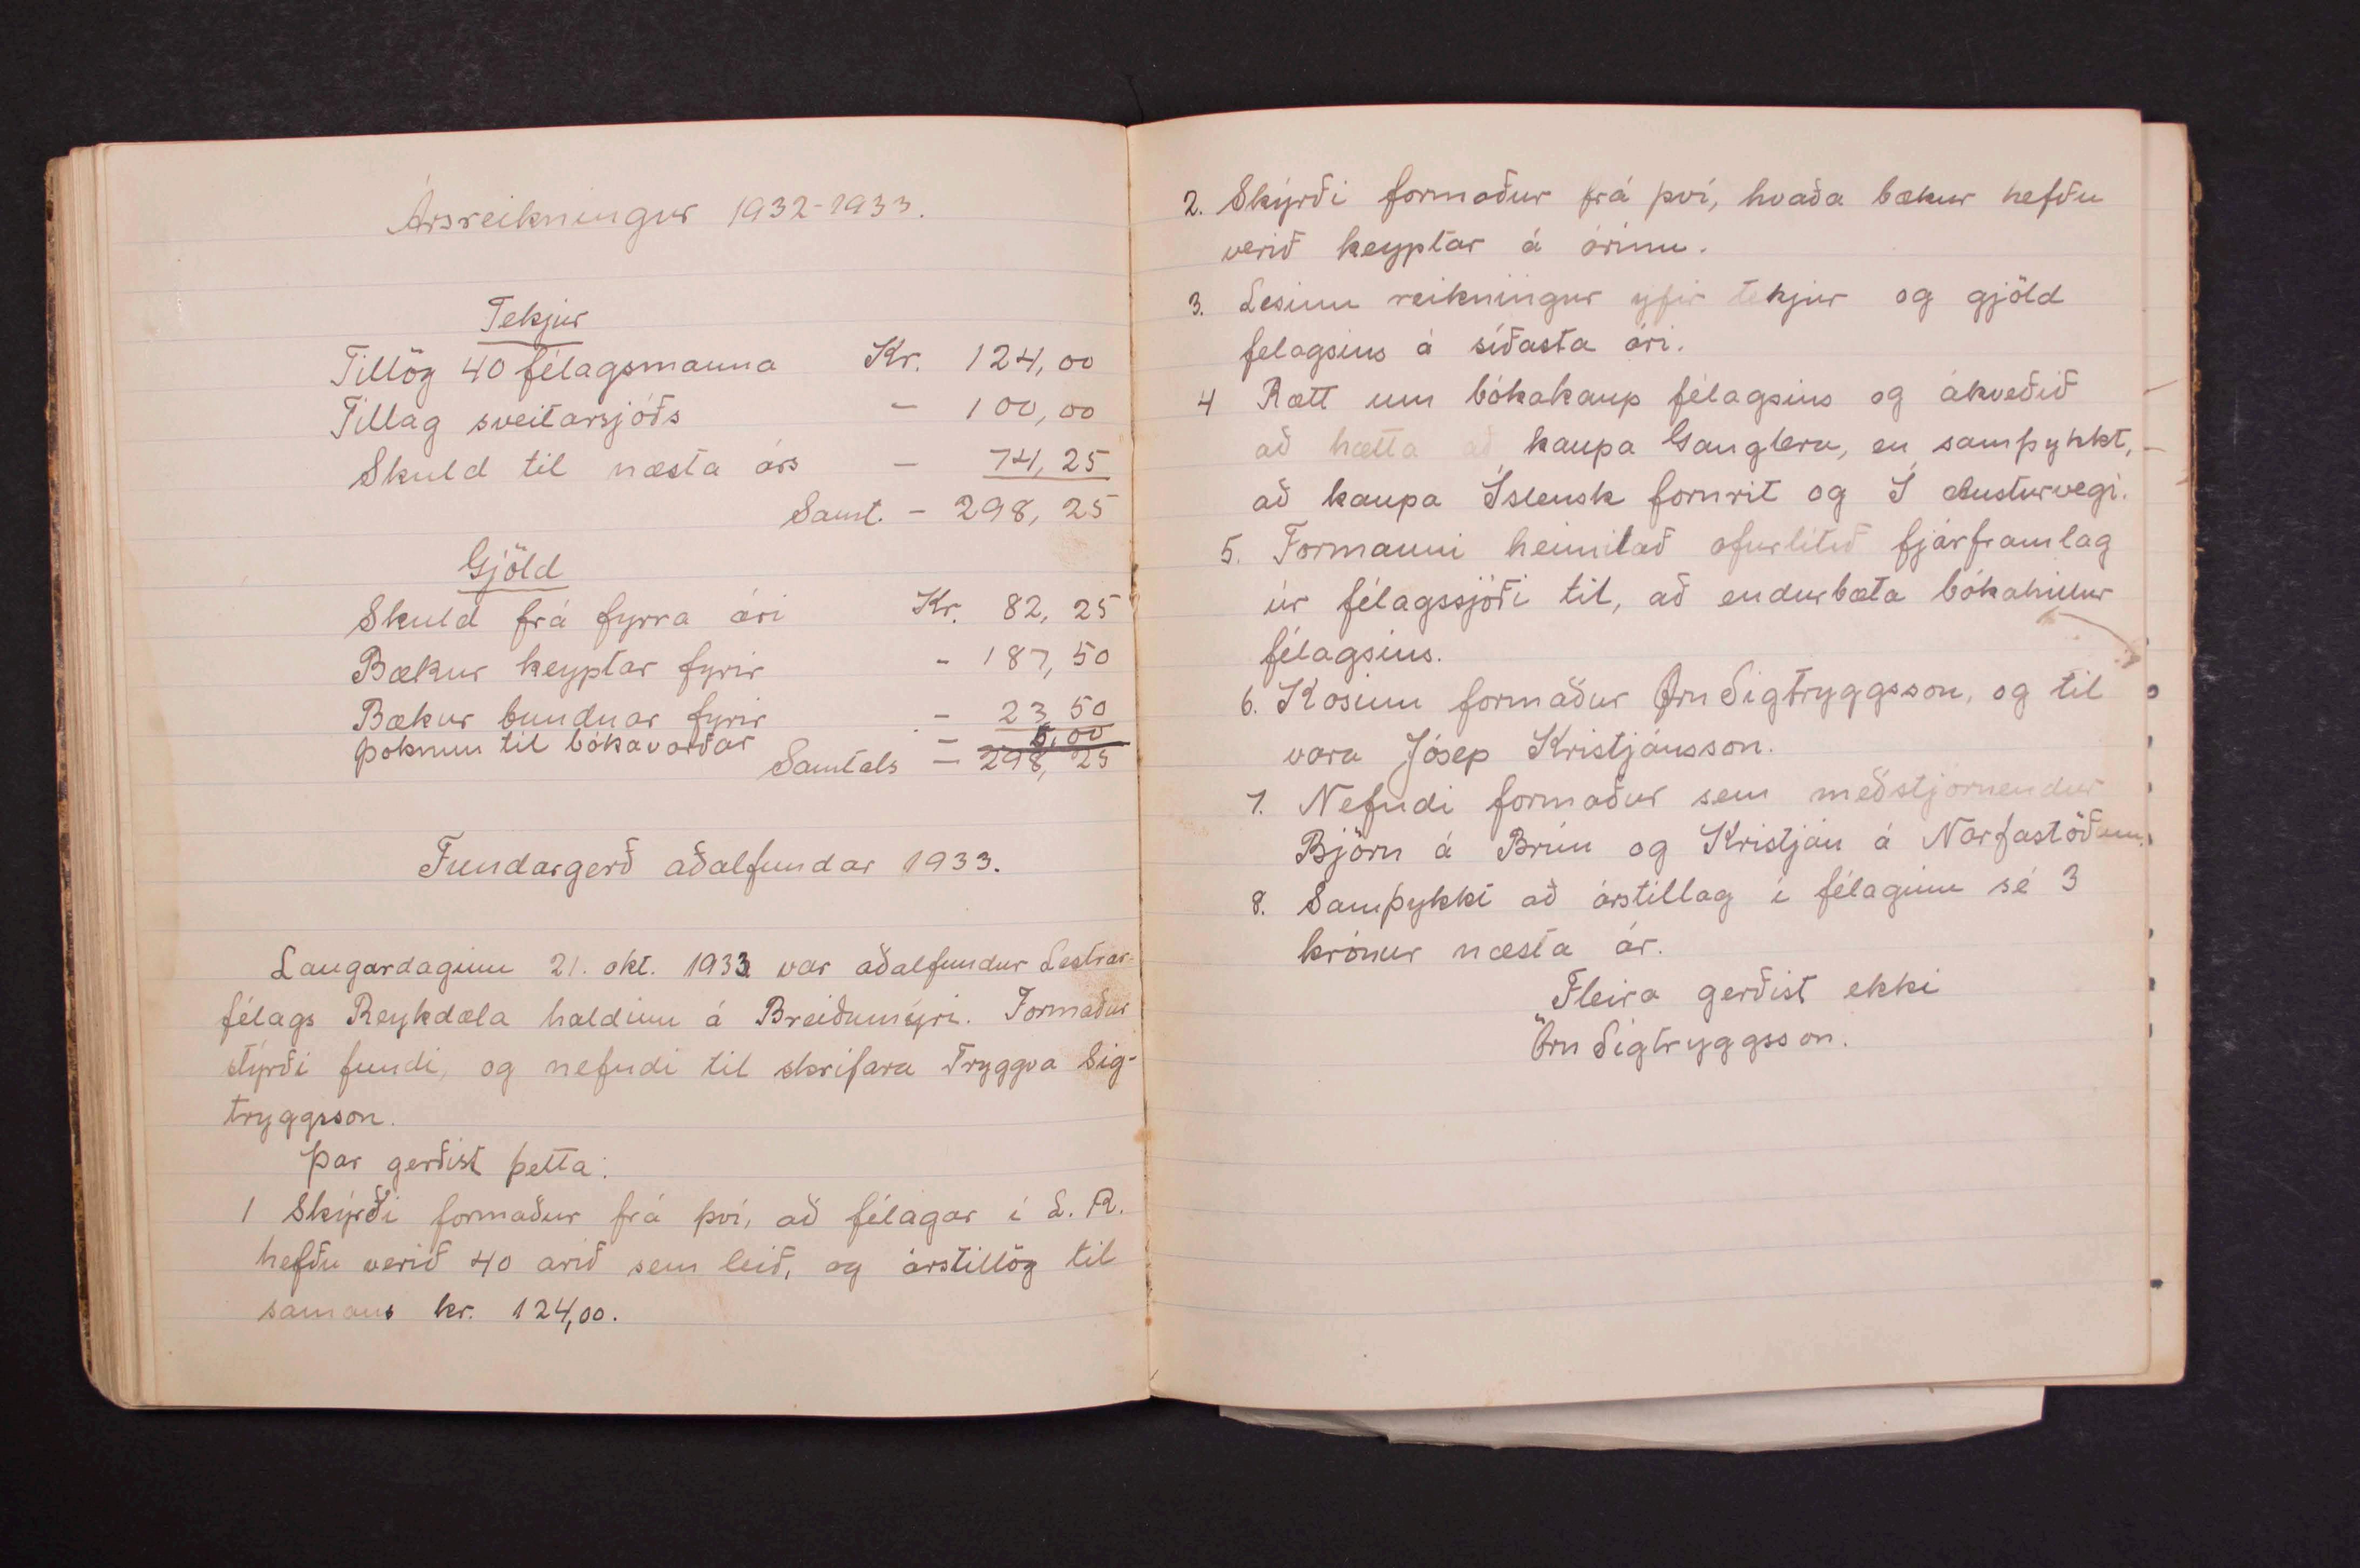 Ársreikningur 1932-1933.
Tekjur
Tillög 40 félagsmanna Kr. 124,00
Tillag sveitarsjóðs - 100,00
Skuld til næsta árs - 74,25
Samt. - 298,25
Gjöld
Skuld frá fyrra ári Kr. 82,25
Bækur keyptar fyrir - 187,50
Bækur bundnar fyrir - 23,50
Þoknun til bókavarðar - 5,00
Samtals - 298,25
Fundargerð aðalfundar 1933.
Laugardaginn 21. okt. 1933 var aðalfundur Lestrar-
félags Reykdæla haldinn á Breiðumýri. Formaður
stýrði fundi, og nefndi til skrifara Tryggva Sig-
tryggsson.
Þar gerðist þetta:
1 Skýrði formaður frá því, að félagar í L. R.
hefðu verið 40 árið sem leið, og árstillög til
samans kr. 124,00.
2. Skýrði formaður frá því, hvaða bækur hefðu
verið keyptar á árinu.
3. Lesinn reikningur yfir tekjur og gjöld
felagsins á síðasta ári.
4 Rætt um bókakaup félagsins og ákveðið
að hætta að kaupa Ganglera, en samþykkt,
að kaupa Íslensk fornrit og Í Austurvegi.
5. Formanni heimilað ofurlítið fjárframlag
úr félagssjóði til, að endurbæta bókahillur
félagsins.
6. Kosinn formaður Örn Sigtryggsson, og til
vara Jósep Kristjánsson.
7. Nefndi formaður sem meðstjórnendur
Björn á Brún og Kristján á Narfastöðum.
8. Samþykkt að árstillag í félaginu sé 3
krónur næsta ár.
Fleira gerðist ekki
Örn Sigtryggsson.